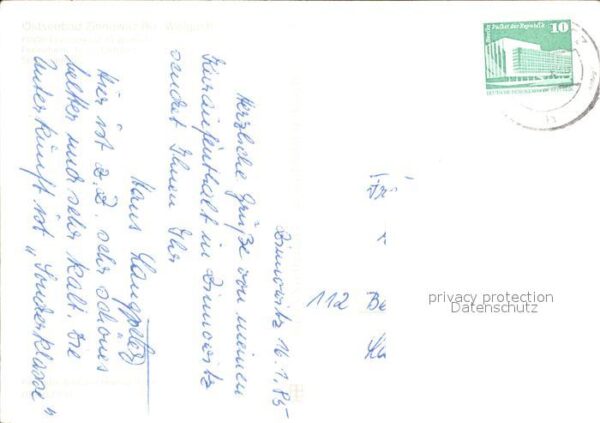 Ostseebad Zinnowitz
Zinnowitz 16.1.85
Herzliche Grüße von meinem
Kuraufenthalt in Zinnowitz
sendet Ihnen Ihr
Hans
Hier ist z.Z. sehr schönes
Wetter und sehr kalt. Die
Unterkunft ist „Sonderklasse"
10
Palast der Republik
Berlin
112 Be
privacy protection
Datenschutz